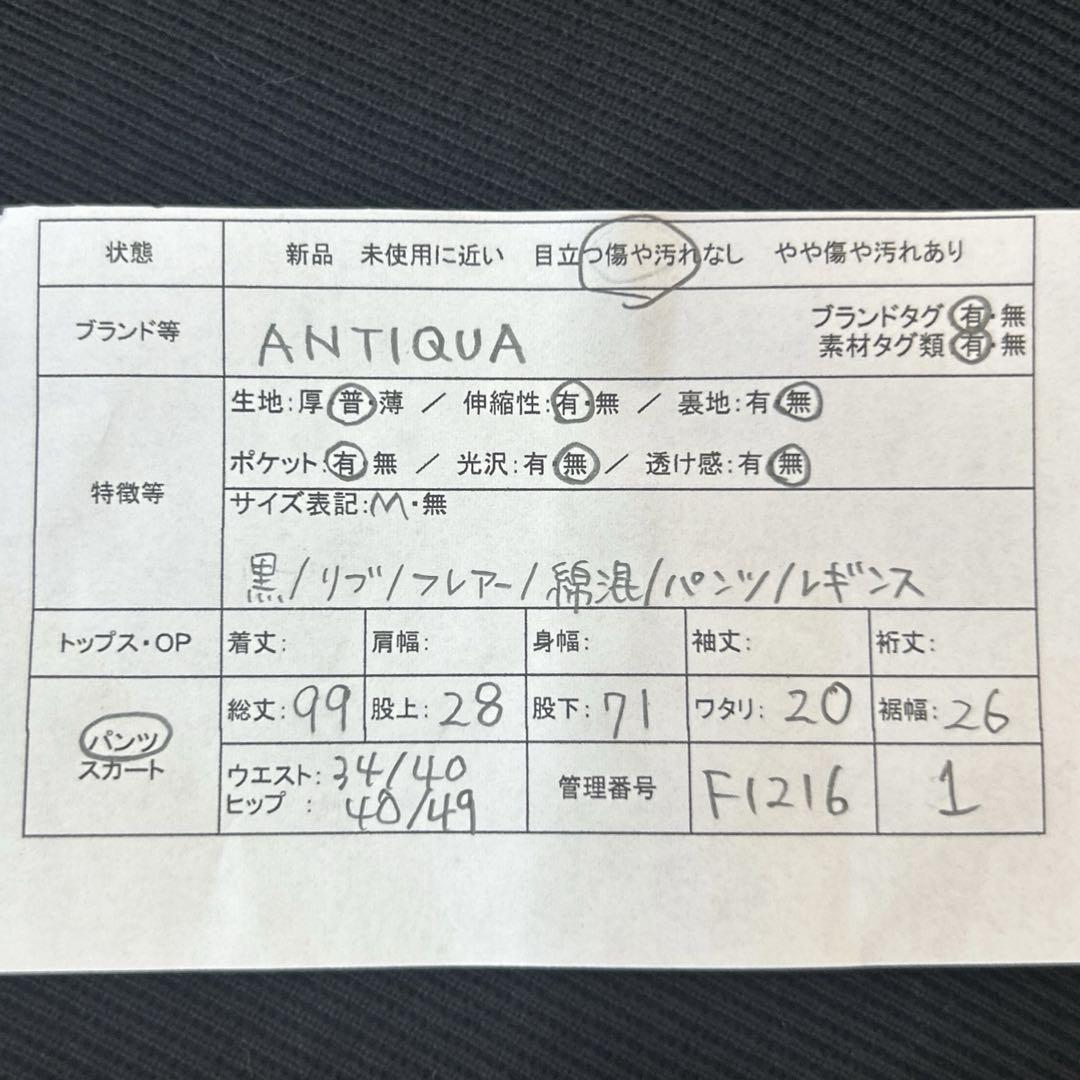 状態 新品 未使用に近い 目立つ傷や汚れなし やや傷や汚れあり
ブランド等 ANTIQUA ブランドタグ 有・無
素材タグ類 有・無
特徴等
生地:厚・普・薄 / 伸縮性:有・無 / 裏地:有・無
ポケット:有・無 / 光沢:有・無 / 透け感:有・無
サイズ表記:M・無
黒/リブ/フレアー/綿混/パンツ/レギンス
トップス・OP 着丈: 肩幅: 身幅: 袖丈: 裄丈:
パンツ
スカート
総丈:99 股上:28 股下:71 ワタリ:20 裾幅:26
ウエスト:34/40
ヒップ :40/49
管理番号 F1216 1